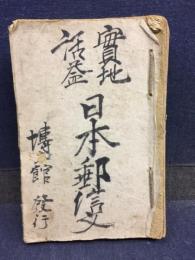 實地
活益
日本郵信文
博館發行